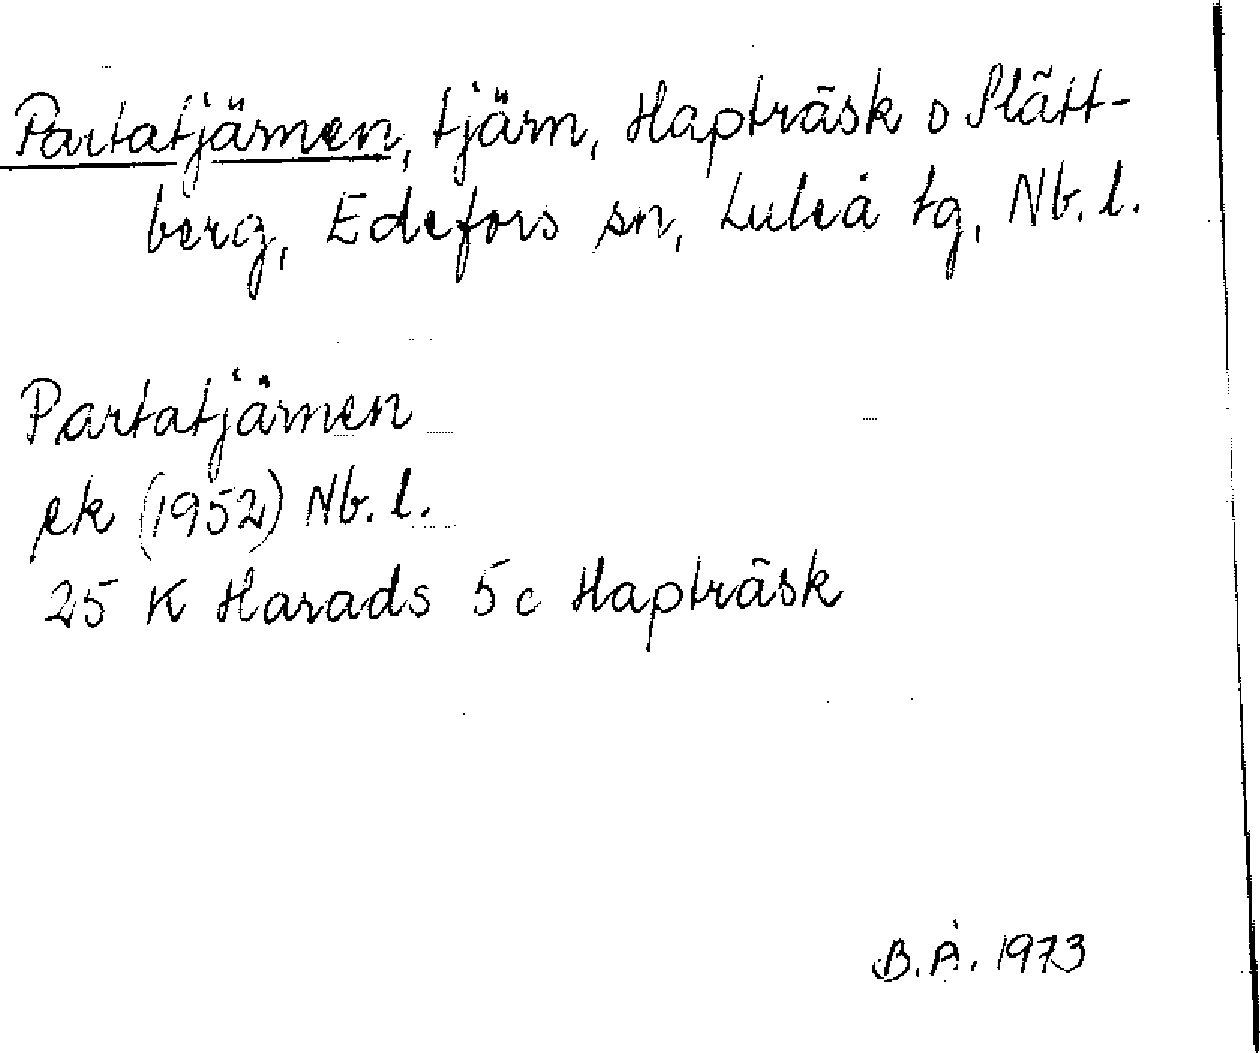 Partatjärnen, tjärn, Hapträsk o Slätt-
berg, Edefors sn, Luleå tg, Nb. l.
Partatjärnen
ek (1952) Nb. l.
25 K Harads 5c Hapträsk
B.Å. 1973